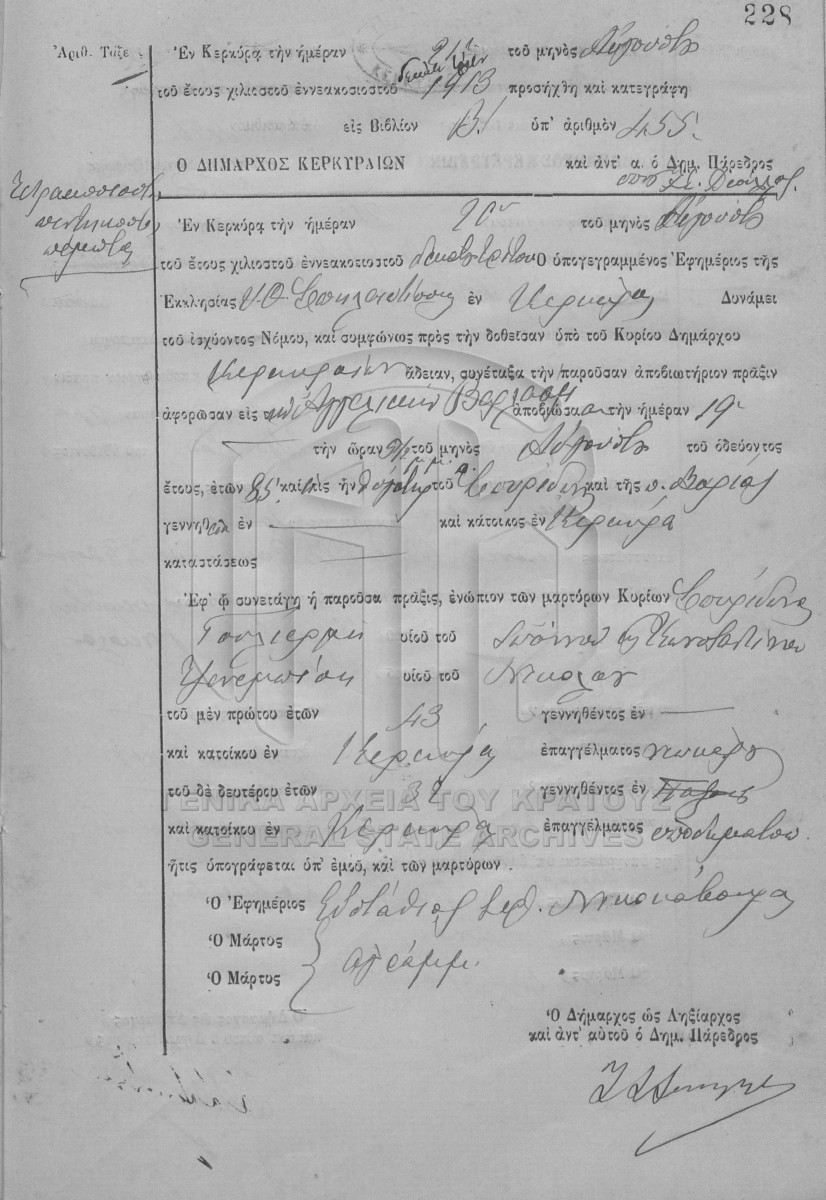 228
Ἀριθ. Τάξε
Ἐν Κερκύρᾳ τὴν ἡμέραν 21ην τοῦ μηνὸς Αὐγούστου
τοῦ ἔτους χιλιοστοῦ ἐννεακοσιοστοῦ δεκάτου τρίτου 1913 προσήχθη καὶ κατεγράφη
εἰς Βιβλίον Β/ ὑπ' ἀριθμὸν 455.
Ο ΔΗΜΑΡΧΟΣ ΚΕΡΚΥΡΑΙΩΝ καὶ ἀντ' α. ὁ Δημ. Πάρεδρος
Τετρακοσιοστὴ
πεντηκοστὴ
πέμπτη
Ἐν Κερκύρᾳ τὴν ἡμέραν 20ην τοῦ μηνὸς Αὐγούστου
τοῦ ἔτους χιλιοστοῦ ἐννεακοσιοστοῦ δεκάτου τρίτου Ὁ ὑπογεγραμμένος Ἐφημέριος τῆς
Ἐκκλησίας Υ.Θ. Σπηλαιωτίσσης ἐν Κερκύρᾳ Δυνάμει
τοῦ ἰσχύοντος Νόμου, καὶ συμφώνως πρὸς τὴν δοθεῖσαν ὑπὸ τοῦ Κυρίου Δημάρχου
Κερκυραίων ἄδειαν, συνέταξα τὴν παροῦσαν ἀποβιωτήριον πρᾶξιν
ἀφορῶσαν εἰς τὴν Ἀγγελικὴν ἀποβιώσασαν τὴν ἡμέραν 19ην
τὴν ὥραν τοῦ μηνὸς Αὐγούστου τοῦ ὁδεύοντος
ἔτους, ἐτῶν 85. καὶ τὶς ἦν θυγάτηρ τοῦ π. Σπυρίδωνος καὶ τῆς π. Μαρίας
γεννηθεῖσα ἐν — καὶ κάτοικος ἐν Κερκύρᾳ
καταστάσεως —
Ἐφ' ᾧ συνετάγη ἡ παροῦσα πρᾶξις, ἐνώπιον τῶν μαρτύρων Κυρίων Σπυρίδωνος
υἱοῦ τοῦ Ἰωάννου καὶ Κωνσταντίνου
υἱοῦ τοῦ Νικολάου
τοῦ μὲν πρώτου ἐτῶν 43 γεννηθέντος ἐν —
καὶ κατοίκου ἐν Κερκύρᾳ ἐπαγγέλματος
τοῦ δὲ δευτέρου ἐτῶν 32 γεννηθέντος ἐν
ΓΕΝΙΚΑ ΑΡΧΕΙΑ ΤΟΥ ΚΡΑΤΟΥΣ
καὶ κατοίκου ἐν Κερκύρᾳ ἐπαγγέλματος ὑποδηματοπ.
GENERAL STATE ARCHIVES
ἥτις ὑπογράφεται ὑπ' ἐμοῦ, καὶ τῶν μαρτύρων.
Ὁ Ἐφημέριος Εὐστάθιος Ἱερ.
Ὁ Μάρτυς
ἀγράμμ.
Ὁ Μάρτυς
Ὁ Δήμαρχος ὡς Ληξίαρχος
καὶ ἀντ' αὐτοῦ ὁ Δημ. Πάρεδρος